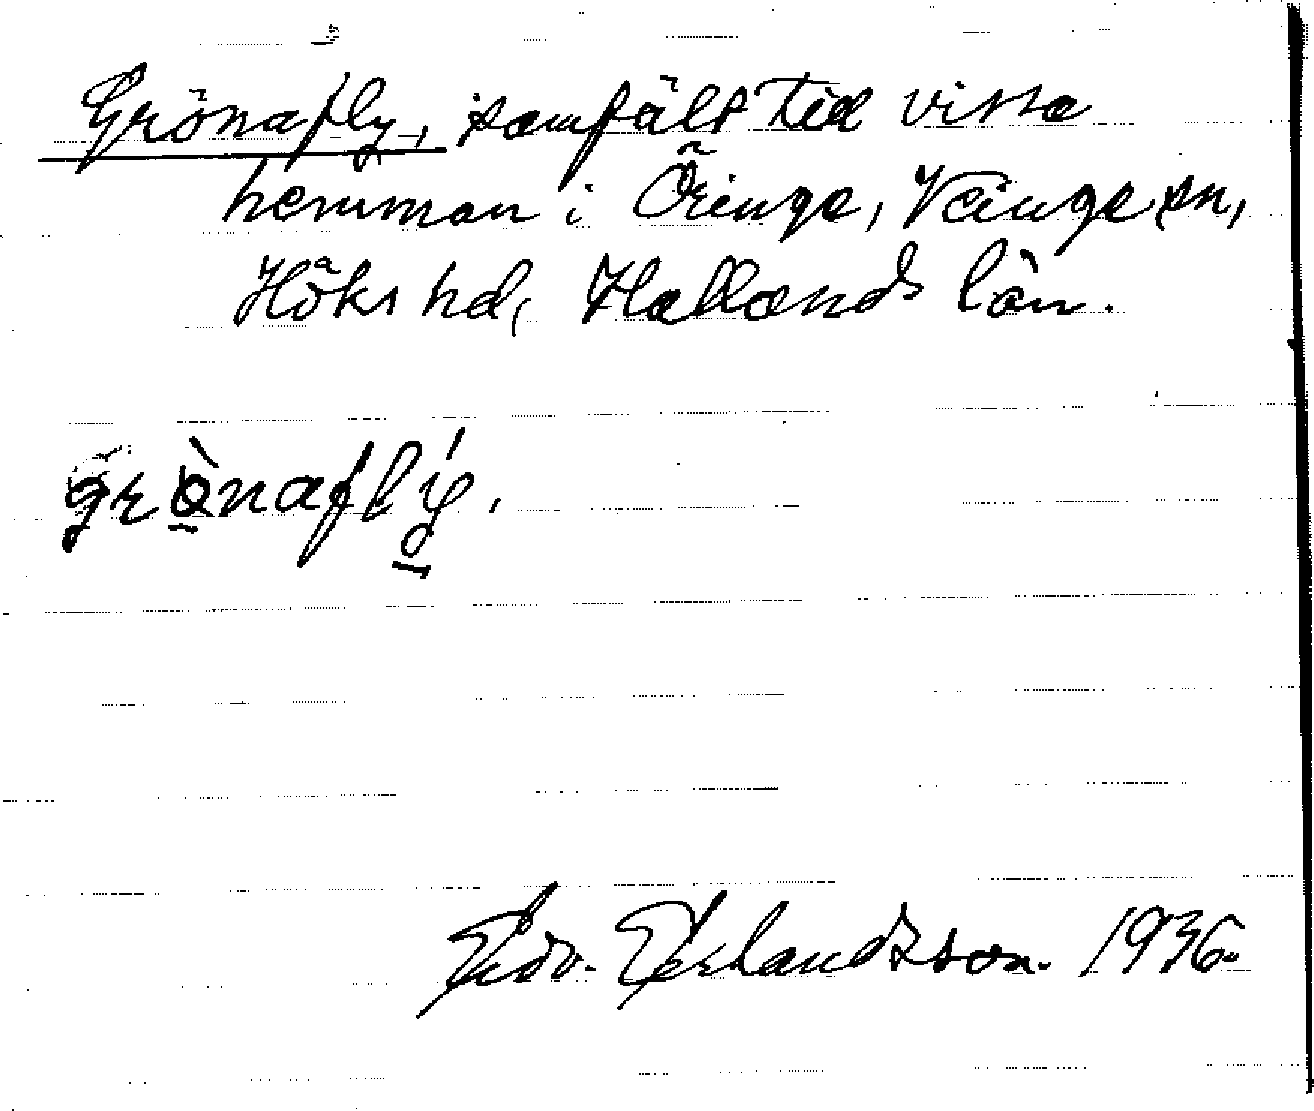 Grönafly, samfält till vissa
hemman i Öringe, Veinge sn,
Höks hd, Hallands län.
grò̱naflý̱.
Edv. Erlandsson. 1936.